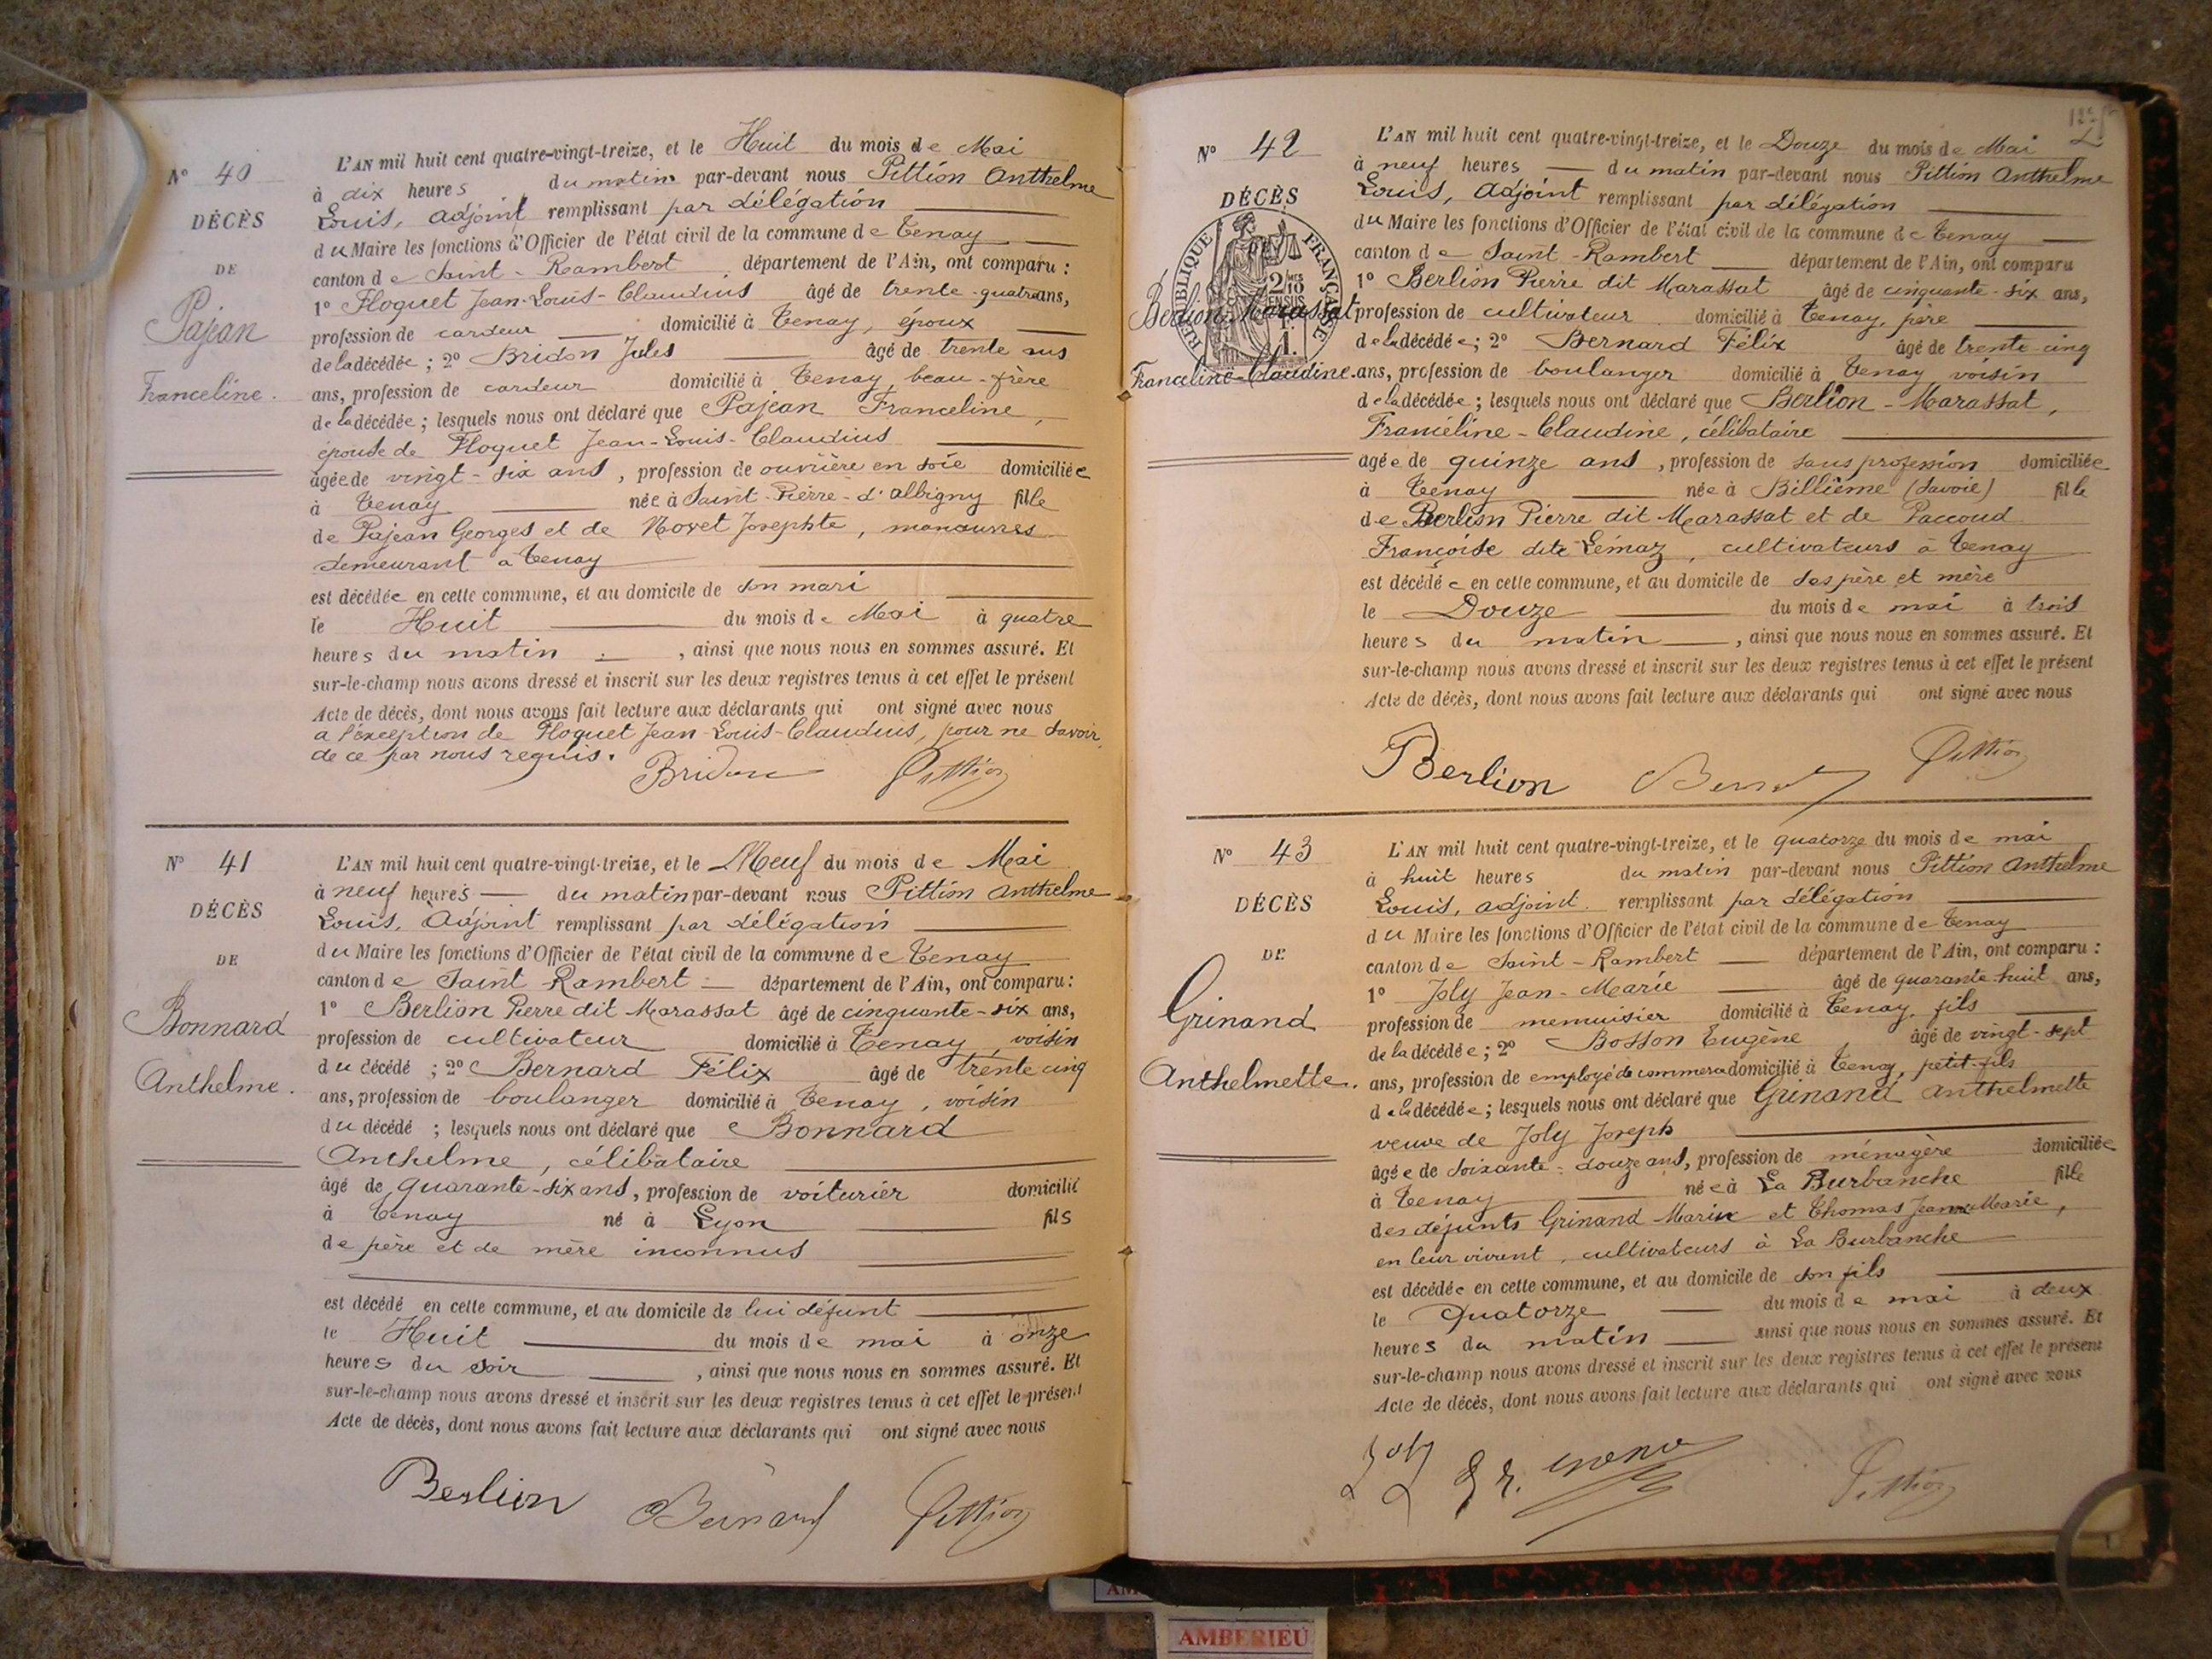 N° 40
DÉCÈS
DE
Pajean
Franceline.
L'AN mil huit cent quatre-vingt-treize, et le Huit du mois de Mai
à dix heures du matin par-devant nous Pittion Anthelme
Louis, adjoint remplissant par délégation
du Maire les fonctions d'Officier de l'état civil de la commune de Tenay
canton de Saint-Rambert département de l'Ain, ont comparu :
1° Floquet Jean-Louis-Claudius âgé de trente-quatre ans,
profession de cardeur domicilié à Tenay, époux
de la décédée ; 2° Bridon Jules âgé de trente
ans, profession de cardeur domicilié à Tenay, beau-frère
de la décédée ; lesquels nous ont déclaré que Pajean Franceline,
épouse de Floquet Jean-Louis-Claudius
âgée de vingt-six ans, profession de ouvrière en soie domiciliée
à Tenay née à Saint-Pierre-d'Albigny fille
de Pajean Georges et de Novet Josephte, manouvres
demeurant à Tenay
est décédée en cette commune, et au domicile de son mari
le Huit du mois de Mai à quatre
heures du matin, ainsi que nous nous en sommes assuré. Et
sur-le-champ nous avons dressé et inscrit sur les deux registres tenus à cet effet le présent
Acte de décès, dont nous avons fait lecture aux déclarants qui ont signé avec nous
a l'exception de Floquet Jean-Louis-Claudius, pour ne savoir,
de ce par nous requis.
Bridon Pittion
N° 41
DÉCÈS
DE
Bonnard
Anthelme.
L'AN mil huit cent quatre-vingt-treize, et le Neuf du mois de Mai
à neuf heures du matin par-devant nous Pittion Anthelme
Louis, Adjoint remplissant par délégation
du Maire les fonctions d'Officier de l'état civil de la commune de Tenay
canton de Saint Rambert département de l'Ain, ont comparu :
1° Berlion Pierre dit Marassat âgé de cinquante-six ans,
profession de cultivateur domicilié à Tenay voisin
du décédé ; 2° Bernard Félix âgé de trente cinq
ans, profession de boulanger domicilié à Tenay, voisin
du décédé ; lesquels nous ont déclaré que Bonnard
Anthelme, célibataire
âgé de quarante-six ans, profession de voiturier domicilié
à Tenay né à Lyon fils
de père et de mère inconnus
est décédé en cette commune, et au domicile de lui défunt
le Huit du mois de mai à onze
heures du soir, ainsi que nous nous en sommes assuré. Et
sur-le-champ nous avons dressé et inscrit sur les deux registres tenus à cet effet le présent
Acte de décès, dont nous avons fait lecture aux déclarants qui ont signé avec nous
Berlion Bernard Pittion
N° 42
DÉCÈS
RÉPUBLIQUE FRANÇAISE
Berlion-Marassat
Franceline-Claudine.
L'AN mil huit cent quatre-vingt-treize, et le Douze du mois de Mai
à neuf heures du matin par-devant nous Pittion Anthelme
Louis, adjoint remplissant par délégation
du Maire les fonctions d'Officier de l'état civil de la commune de Tenay
canton de Saint-Rambert département de l'Ain, ont comparu
1° Berlion Pierre dit Marassat âgé de cinquante-six ans,
profession de cultivateur domicilié à Tenay, père
de la décédée ; 2° Bernard Félix âgé de trente-cinq
ans, profession de boulanger domicilié à Tenay voisin
de la décédée ; lesquels nous ont déclaré que Berlion-Marassat,
Franceline-Claudine, célibataire
âgée de quinze ans, profession de sans profession domiciliée
à Tenay née à Billième (Savoie) fille
de Berlion Pierre dit Marassat et de Paccoud
Françoise dite Lémaz, cultivateurs à Tenay
est décédée en cette commune, et au domicile de ses père et mère
le Douze du mois de mai à trois
heures du matin, ainsi que nous nous en sommes assuré. Et
sur-le-champ nous avons dressé et inscrit sur les deux registres tenus à cet effet le présent
Acte de décès, dont nous avons fait lecture aux déclarants qui ont signé avec nous
Berlion Pittion
N° 43
DÉCÈS
DE
Grinand
Anthelmette.
L'AN mil huit cent quatre-vingt-treize, et le quatorze du mois de mai
à huit heures du matin par-devant nous Pittion Anthelme
Louis, adjoint. remplissant par délégation
du Maire les fonctions d'Officier de l'état civil de la commune de Tenay
canton de Saint-Rambert département de l'Ain, ont comparu :
1° Joly Jean-Marie âgé de quarante-huit ans,
profession de menuisier domicilié à Tenay, fils
de la décédée ; 2° Bosson Eugène âgé de vingt-sept
ans, profession de employé de commerce domicilié à Tenay, petit-fils
de la décédée ; lesquels nous ont déclaré que Grinand Anthelmette
veuve de Joly Joseph
âgée de soixante-douze ans, profession de ménagère domiciliée
à Tenay née à La Burbanche fille
des défunts Grinand Marin et Thomas Jeanne Marie,
en leur vivant, cultivateurs à La Burbanche
est décédée en cette commune, et au domicile de son fils
le Quatorze du mois de mai à deux
heures du matin ainsi que nous nous en sommes assuré. Et
sur-le-champ nous avons dressé et inscrit sur les deux registres tenus à cet effet le présent
Acte de décès, dont nous avons fait lecture aux déclarants qui ont signé avec nous
Joly Pittion
AMBERIEU